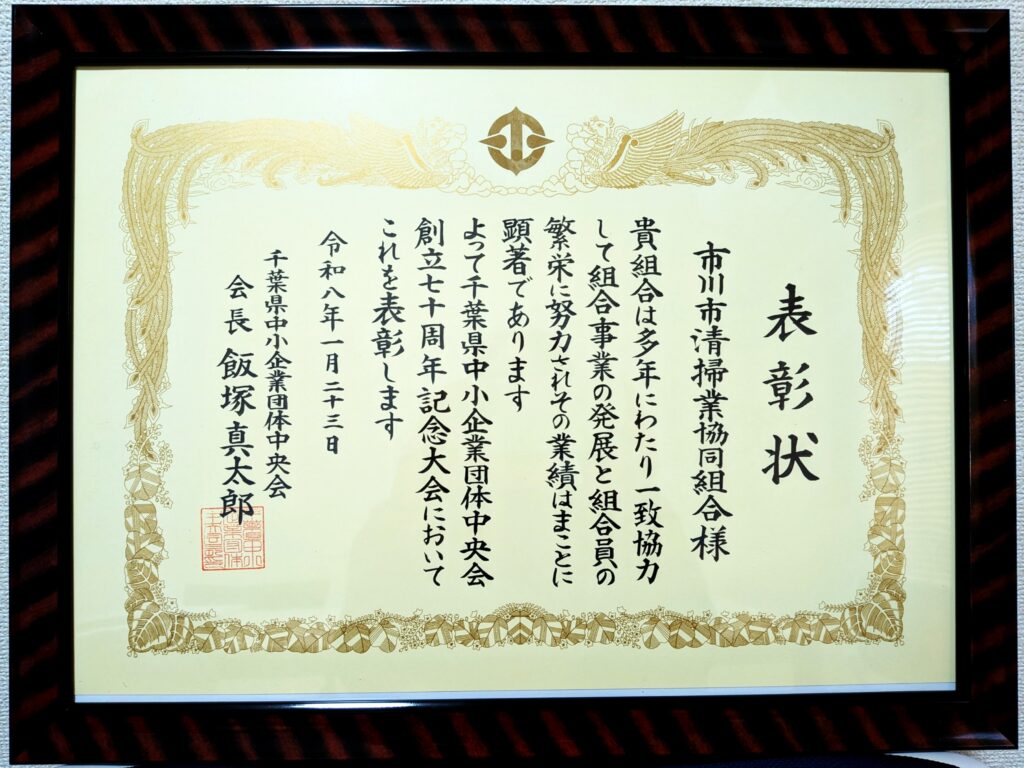 表彰状
市川市清掃業協同組合様
貴組合は多年にわたり一致協力
して組合事業の発展と組合員の
繁栄に努力されその業績はまことに
顕著であります
よって千葉県中小企業団体中央会
創立七十周年記念大会において
これを表彰します
令和八年一月二十三日
千葉県中小企業団体中央会
会長 飯塚真太郎